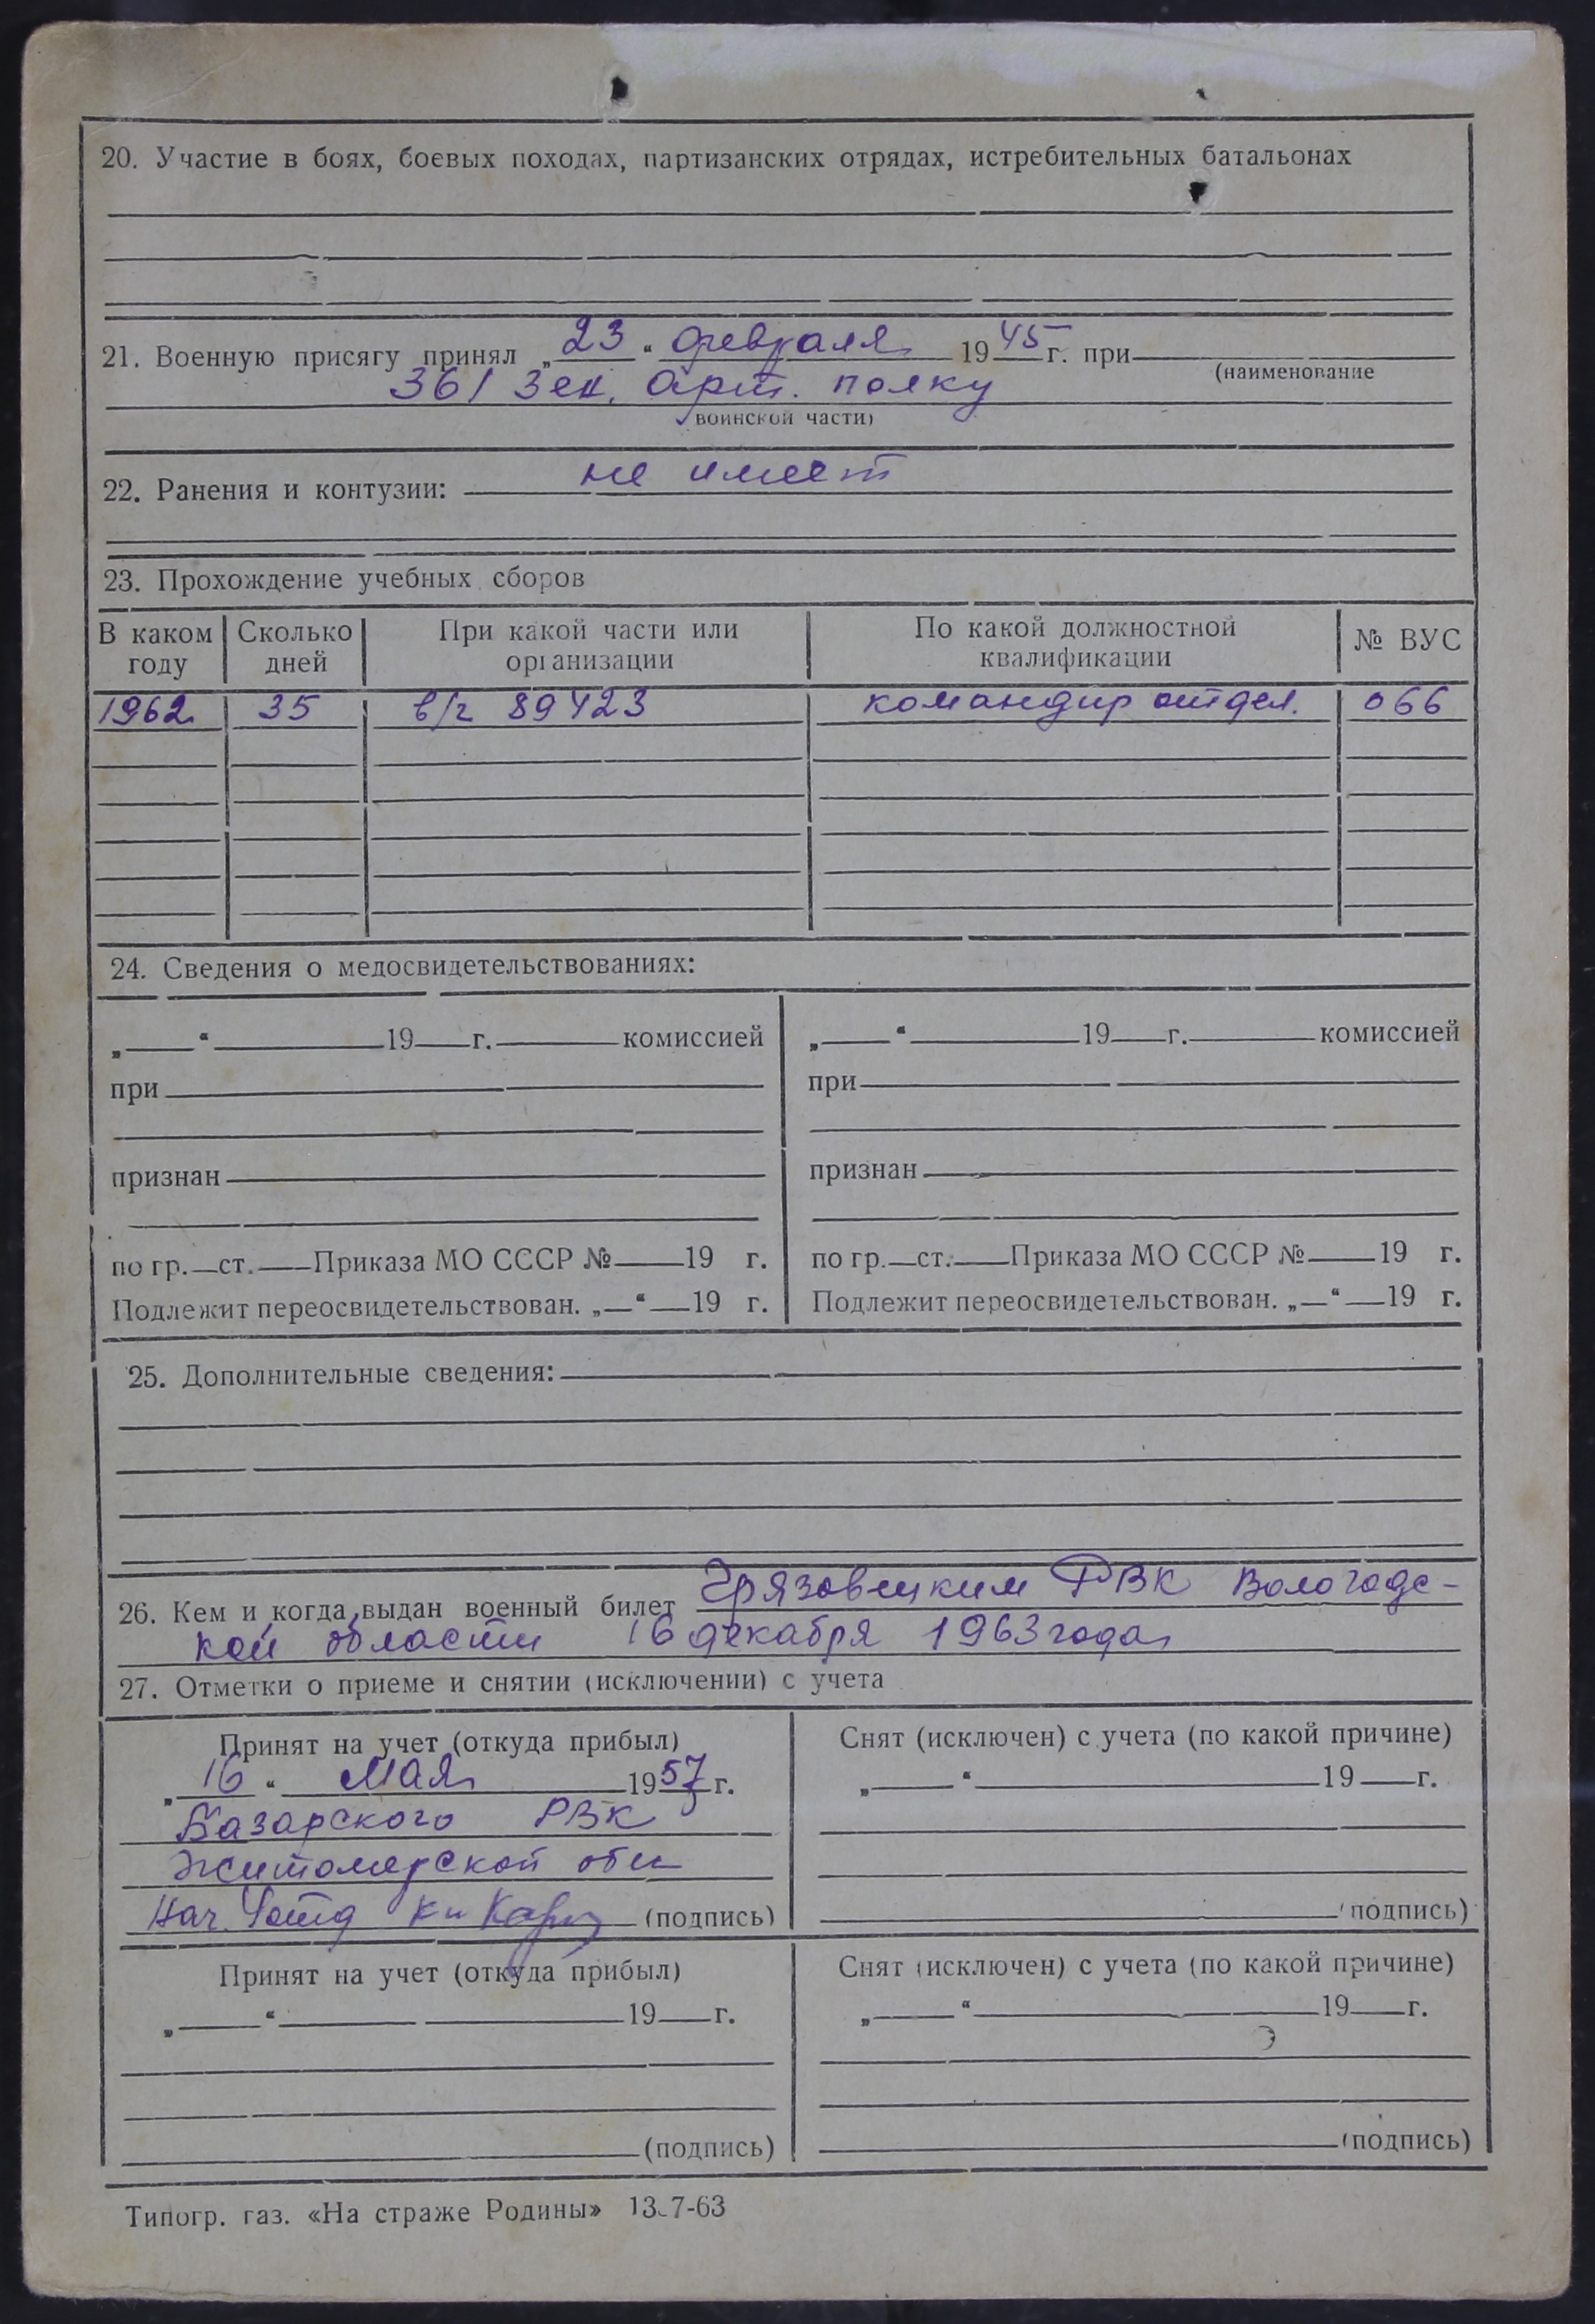 20. Участие в боях, боевых походах, партизанских отрядах, истребительных батальонах
21. Военную присягу принял „23“ февраля 1945 г. при
(наименование
361 Зен. арт. полку
воинской части)
22. Ранения и контузии: не имеет
23. Прохождение учебных сборов
В каком году | Сколько дней | При какой части или организации | По какой должностной квалификации | № ВУС
1962 | 35 | в/ч 89423 | командир отдел. | 066
24. Сведения о медосвидетельствованиях:
„ “ 19 г. комиссией | „ “ 19 г. комиссией
при | при
признан | признан
по гр. ст. Приказа МО СССР № 19 г. | по гр. ст. Приказа МО СССР № 19 г.
Подлежит переосвидетельствован. „ “ 19 г. | Подлежит переосвидетельствован. „ “ 19 г.
25. Дополнительные сведения:
26. Кем и когда выдан военный билет Грязовецким РВК Вологодс-
кой области 16 декабря 1963 года
27. Отметки о приеме и снятии (исключении) с учета
Принят на учет (откуда прибыл) | Снят (исключен) с учета (по какой причине)
„16“ мая 1957 г. | „ “ 19 г.
Базарского РВК
Житомерской обл
Нач. (подпись) | (подпись)
Принят на учет (откуда прибыл) | Снят (исключен) с учета (по какой причине)
„ “ 19 г. | „ “ 19 г.
(подпись) | (подпись)
Типогр. газ. «На страже Родины» 13.7-63